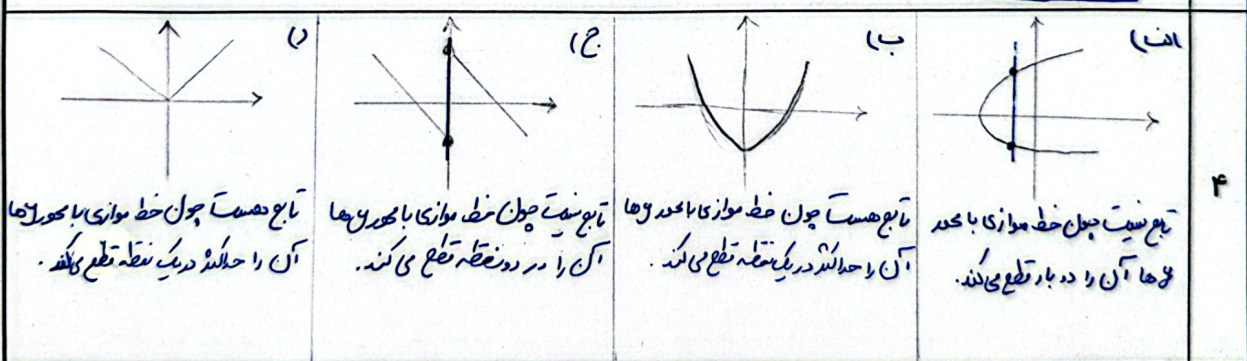 ۴
الف)
تابع نیست چون خط موازی با محور
yها آن را دو بار قطع می‌کند.
ب)
تابع هست چون خط موازی با محور yها
آن را حداکثر در یک نقطه قطع می‌کند.
ج)
تابع نیست چون خط موازی با محور yها
آن را در دو نقطه قطع می‌کند.
د)
تابع هست چون خط موازی با محور yها
آن را حداکثر در یک نقطه قطع می‌کند.